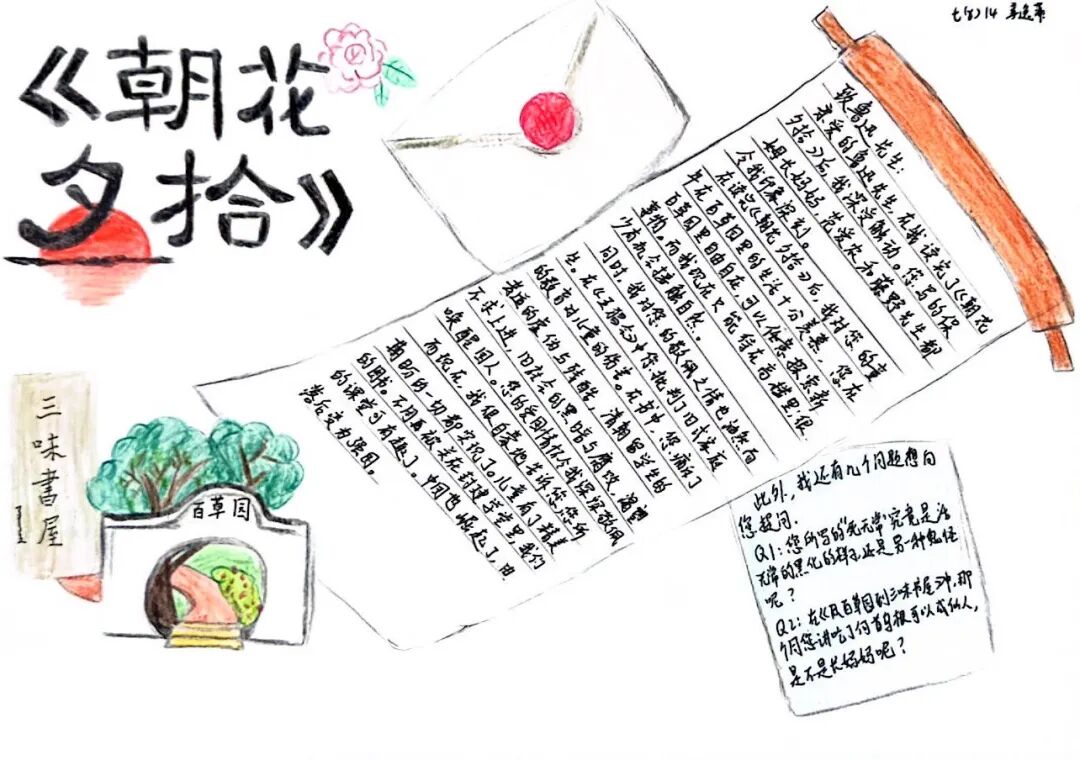 《朝花
夕拾》
七(8) 14
致鲁迅先生:
亲爱的鲁迅先生,在我读完了《朝花
夕拾》后,我深受触动。您写的保
姆长妈妈,范爱农和藤野先生都
令我印象深刻。
在读完《朝花夕拾》后,我对您的童
年在百草园里的生活十分羡慕,您在
百草园里自由自在,可以任意探索新
事物。而我现在只能待在高楼里,很
少有机会接触自然。
同时,我对您的敬佩之情也油然而
生。在《五猖会》中您批判了旧式家庭
的教育对儿童的伤害。在书中,您痛斥了
孝道的虚伪与残酷,清朝留学生的
不求上进,旧社会的黑暗与腐败,渴望
唤醒国人。您的爱国情怀令我深深敬佩
而现在,我很自豪地告诉您,您所
期盼的一切都实现了。儿童有了精美
的图书。不用再被关在封建学堂里,我们
的课堂可有趣了。中国也崛起了,由
落后变为强国。
三味書屋
百草园
此外,我还有几个问题想向
您提问.
Q1:您所写的“死无常”究竟是活
无常的黑化的样子,还是另一种鬼怪
呢?
Q2:在《从百草园到三味书屋》中,那
个同您讲吃了何首乌根可以成仙人,
是不是长妈妈呢?